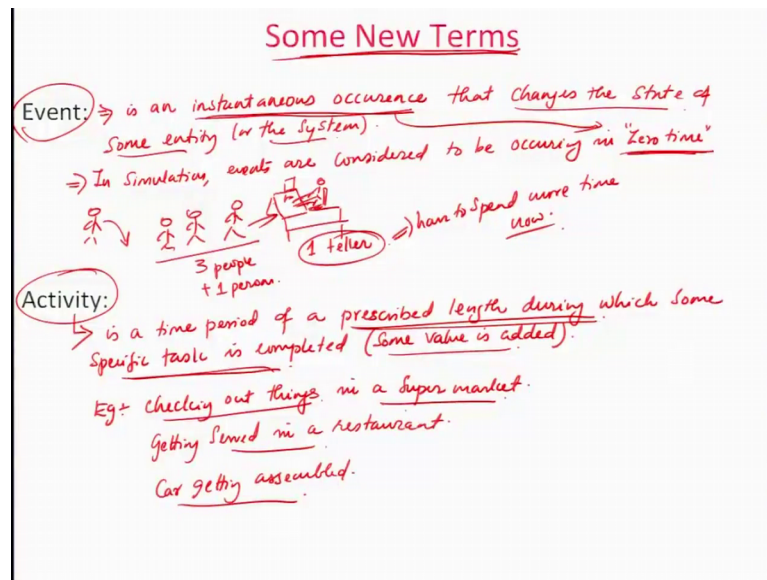 Some New Terms
Event: ⇒ is an instantaneous occurence that Changes the State of
Some entity (or the System).
⇒ In Simulation, events are considered to be occuring in "Zero time"
1 teller ⇒ have to Spend more time
now.
3 people
+ 1 person.
Activity:
is a time period of a prescribed length during which Some
Specific task is completed (Some value is added).
Eg:- Checking out things in a Super market.
Getting Served in a restaurant.
Car getting assembled.